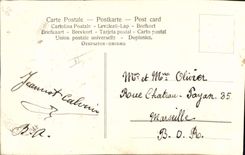 Carte Postale — Postkarte — Post card
Cartolina Postale — Levelezö-Lap — Brefkort
Briefkaart — Brevkort — Tarjeta postal — Carta postal
Union postale universelle — Dopisnice.
Jeannot
B.R.
Mr et Mme Olivier
Rue Chateau-Payan 35
Marseille
B. D. R.